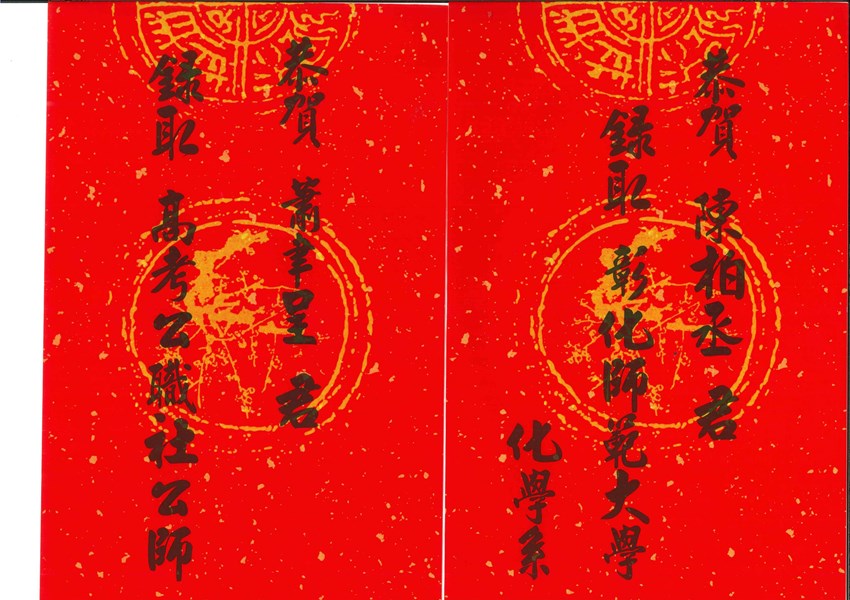 恭賀 陳柏丞 君
錄取 彰化師範大學
化學系
恭賀 蕭聿呈 君
錄取 高考公職社公師